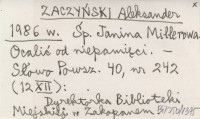 ZACZYŃSKI Aleksander
1986 w. Śp. Janina Millerowa.
Ocalić od niepamięci. —
Słowo Powsz. 40, nr 242
(12 XII):
Dyrektorka Biblioteki
Miejskiej w Zakopanem